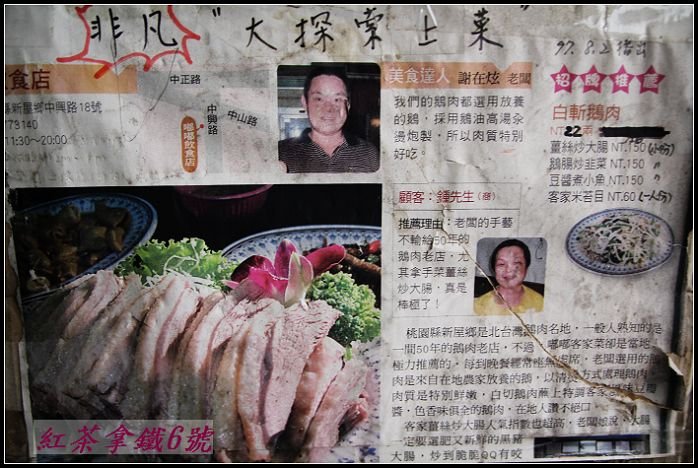 非凡"大探索上菜
97.8.2播出
食店
中正路
縣新屋鄉中興路18號
773140
11:30~20:00
中興路
中山路
嘟嘟飲食店
美食達人 謝在炫 老闆
我們的鵝肉都選用放養
的鵝，採用鵝油高湯汆
燙炮製，所以肉質特別
好吃。
顧客：鍾先生（商）
推薦理由：老闆的手藝
不輸給50年的
鵝肉老店，尤
其拿手菜薑絲
炒大腸，真是
棒極了！
招牌推薦
白斬鵝肉
NT 22兩
薑絲炒大腸 NT.150 (小份)
鵝腸炒韭菜 NT.150 〃
豆醬煮小魚 NT.150 〃
客家米苔目 NT.60 (一人份)
桃園縣新屋鄉是北台灣鵝肉名地，一般人熟知的是
一間50年的鵝肉老店，不過，嘟嘟客家菜卻是當地
極力推薦的，每到晚餐經常座無虛席。老闆選用的鵝
肉是來自在地農家放養的鵝，以清燙方式處理鵝肉，
肉質是特別鮮嫩，白切鵝肉蘸上特調客家
醬，色香味俱全的鵝肉，在地人讚不絕口。
客家薑絲炒大腸人氣指數也超高，老闆娘說，大腸
一定要選肥又新鮮的黑豬
大腸，炒到脆脆QQ有咬
紅茶拿鐵6號